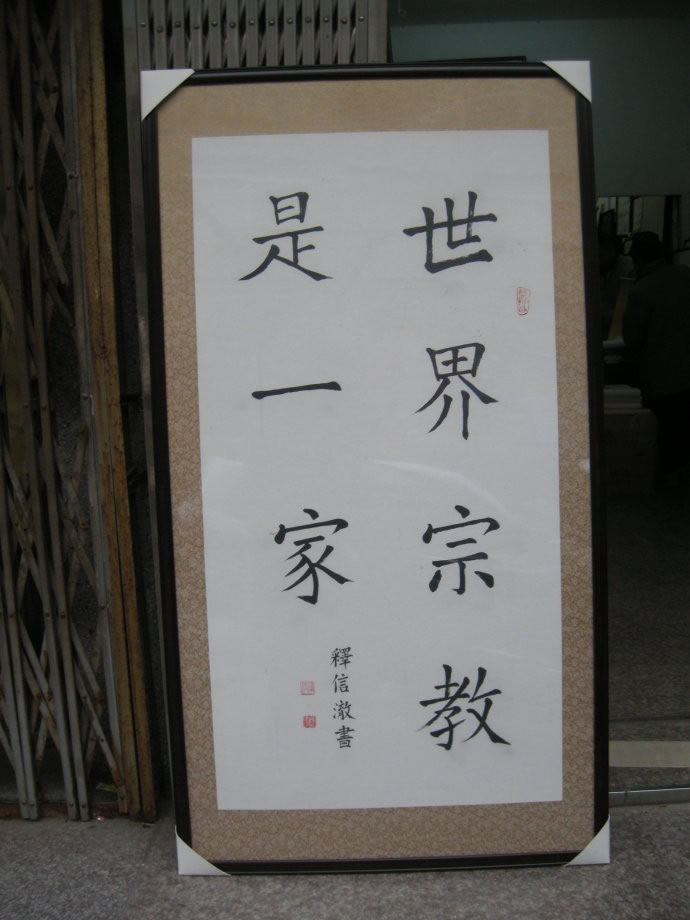 世界宗教
是一家
釋信澈書